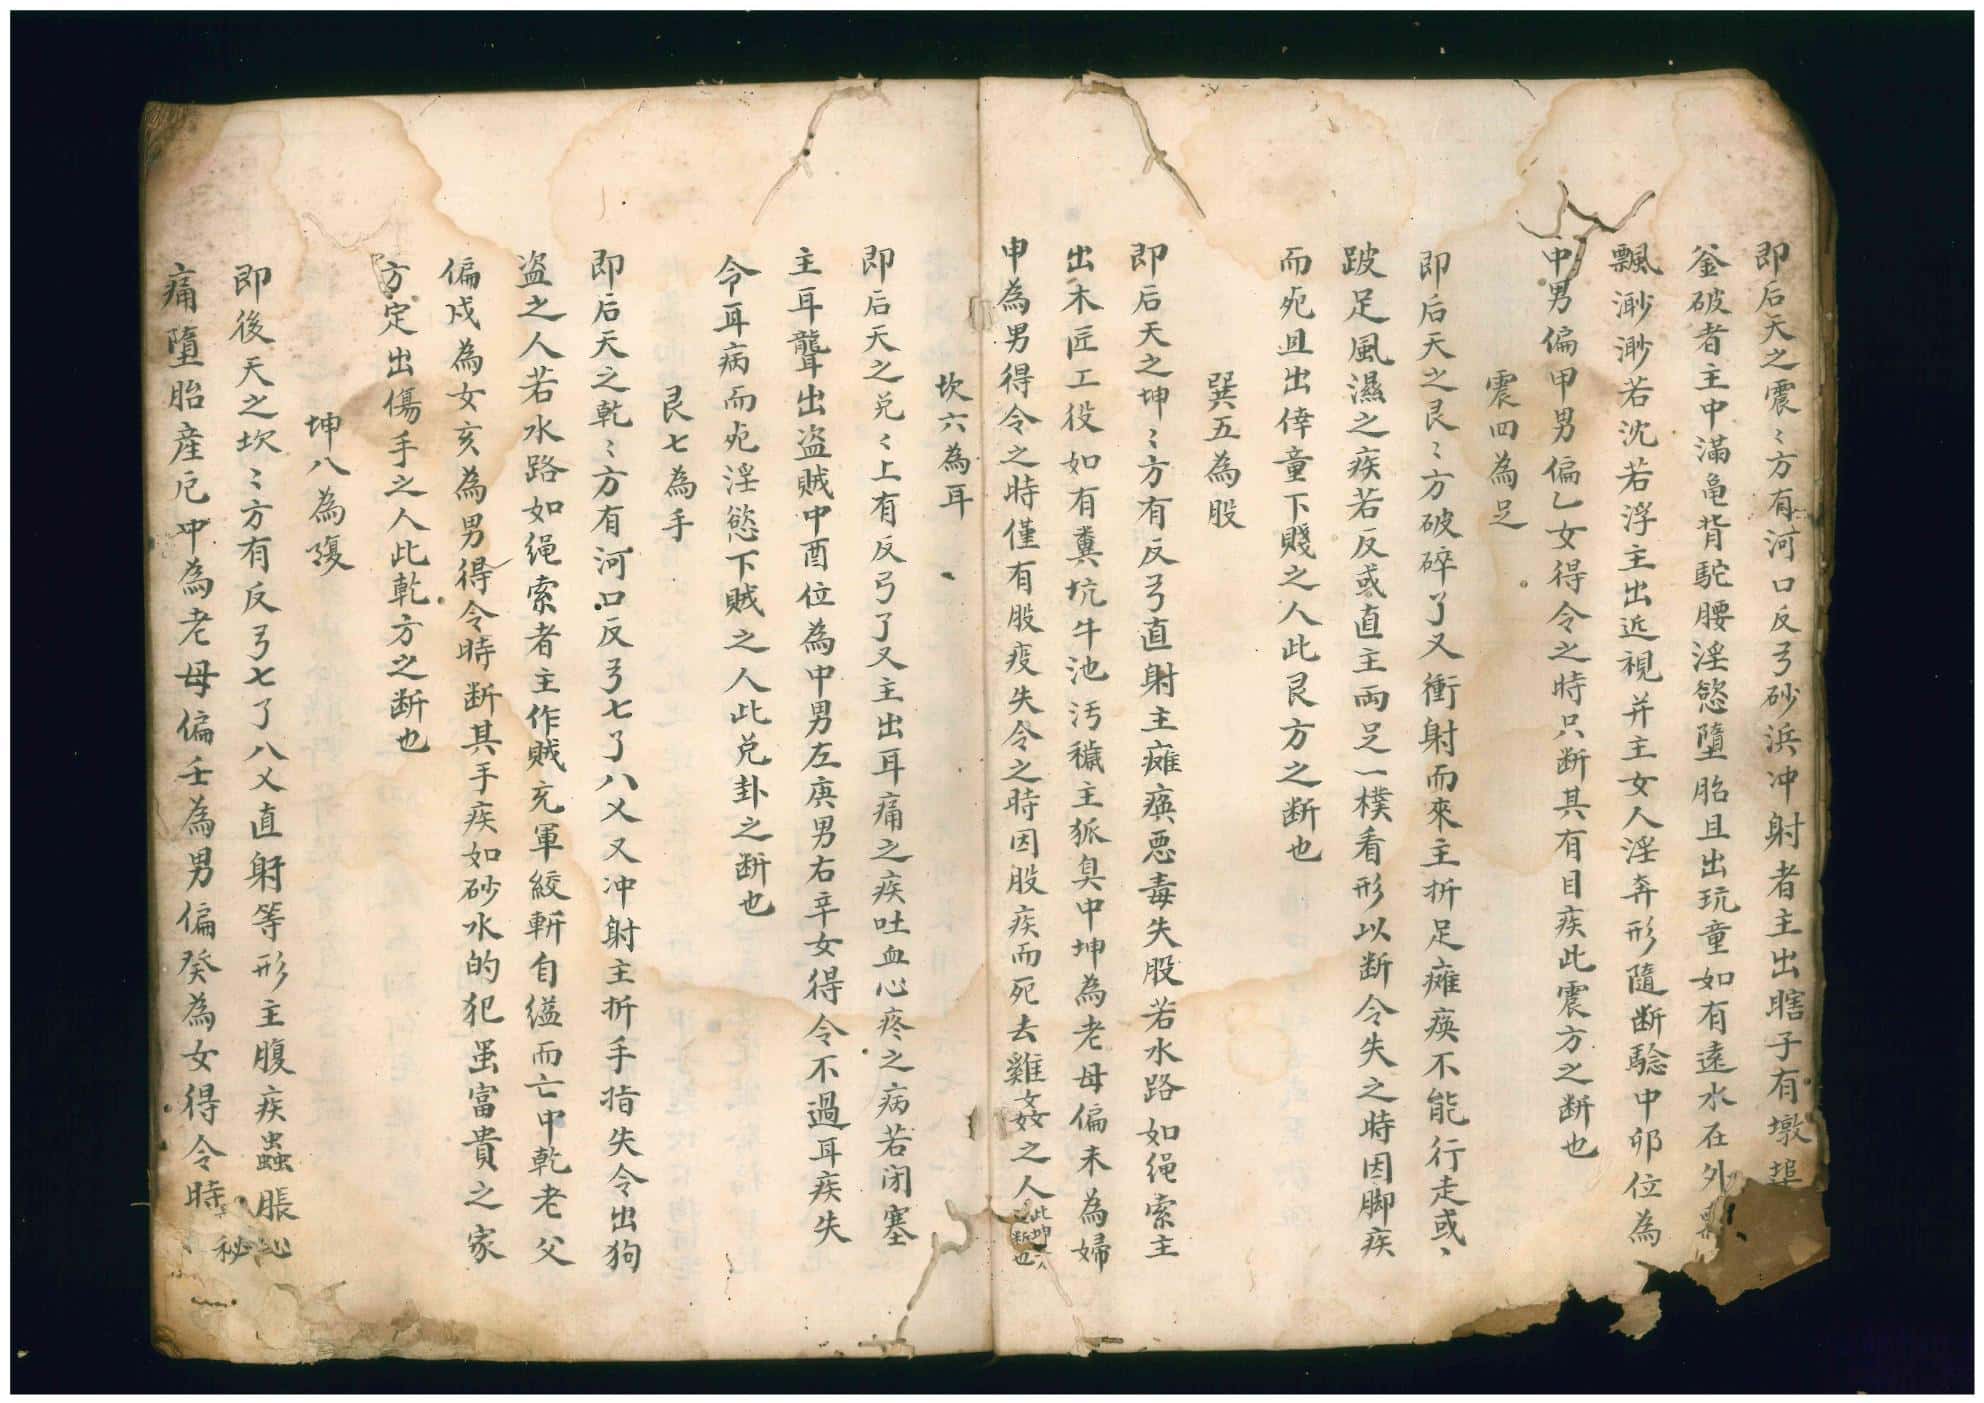 即后天之震〻方有河口反弓砂浜冲射者主出瞎子有墩埠
釜破者主中滿黾背駝腰淫慾墮胎且出玩童如有遠水在外
飄渺渺若沈若浮主出近視并主女人淫奔形隨断驗中卯位為
中男偏甲男偏乙女得令之時只断其有目疾此震方之断也
震四為足
即后天之艮〻方破碎了又衝射而來主折足癱痪不能行走或、
跛足風濕之疾若反或直主両足一樸看形以断令失之時因脚疾
而死且出倖童下賤之人此艮方之断也
巽五為股
即后天之坤〻方有反弓直射主癱痪悪毒失股若水路如绳索主
出木匠工役如有糞坑牛池污穢主狐臭中坤為老母偏未為婦
申為男得令之時僅有股疫失令之時因股疾而死去雞姦之人此坤之断也
坎六為耳
即后天之兑〻上有反弓了又主出耳痛之疾吐血心疼之病若闭塞
主耳聾出盗贼中酉位為中男左庚男右辛女得令不過耳疾失
令耳病而死淫慾下贼之人此兑卦之断也
艮七為手
即后天之乾〻方有河口反弓七了八乂又冲射主折手指失令出狗
盗之人若水路如绳索者主作贼充軍絞斬自缢而亡中乾老父
偏戍為女亥為男得令時断其手疾如砂水的犯虽富貴之家
方定出傷手之人此乾方之断也
坤八為腹
即後天之坎〻方有反弓七了八乂直射等形主腹疾蟲脹心
痛墮胎産厄中為老母偏壬為男偏癸為女得令時秘